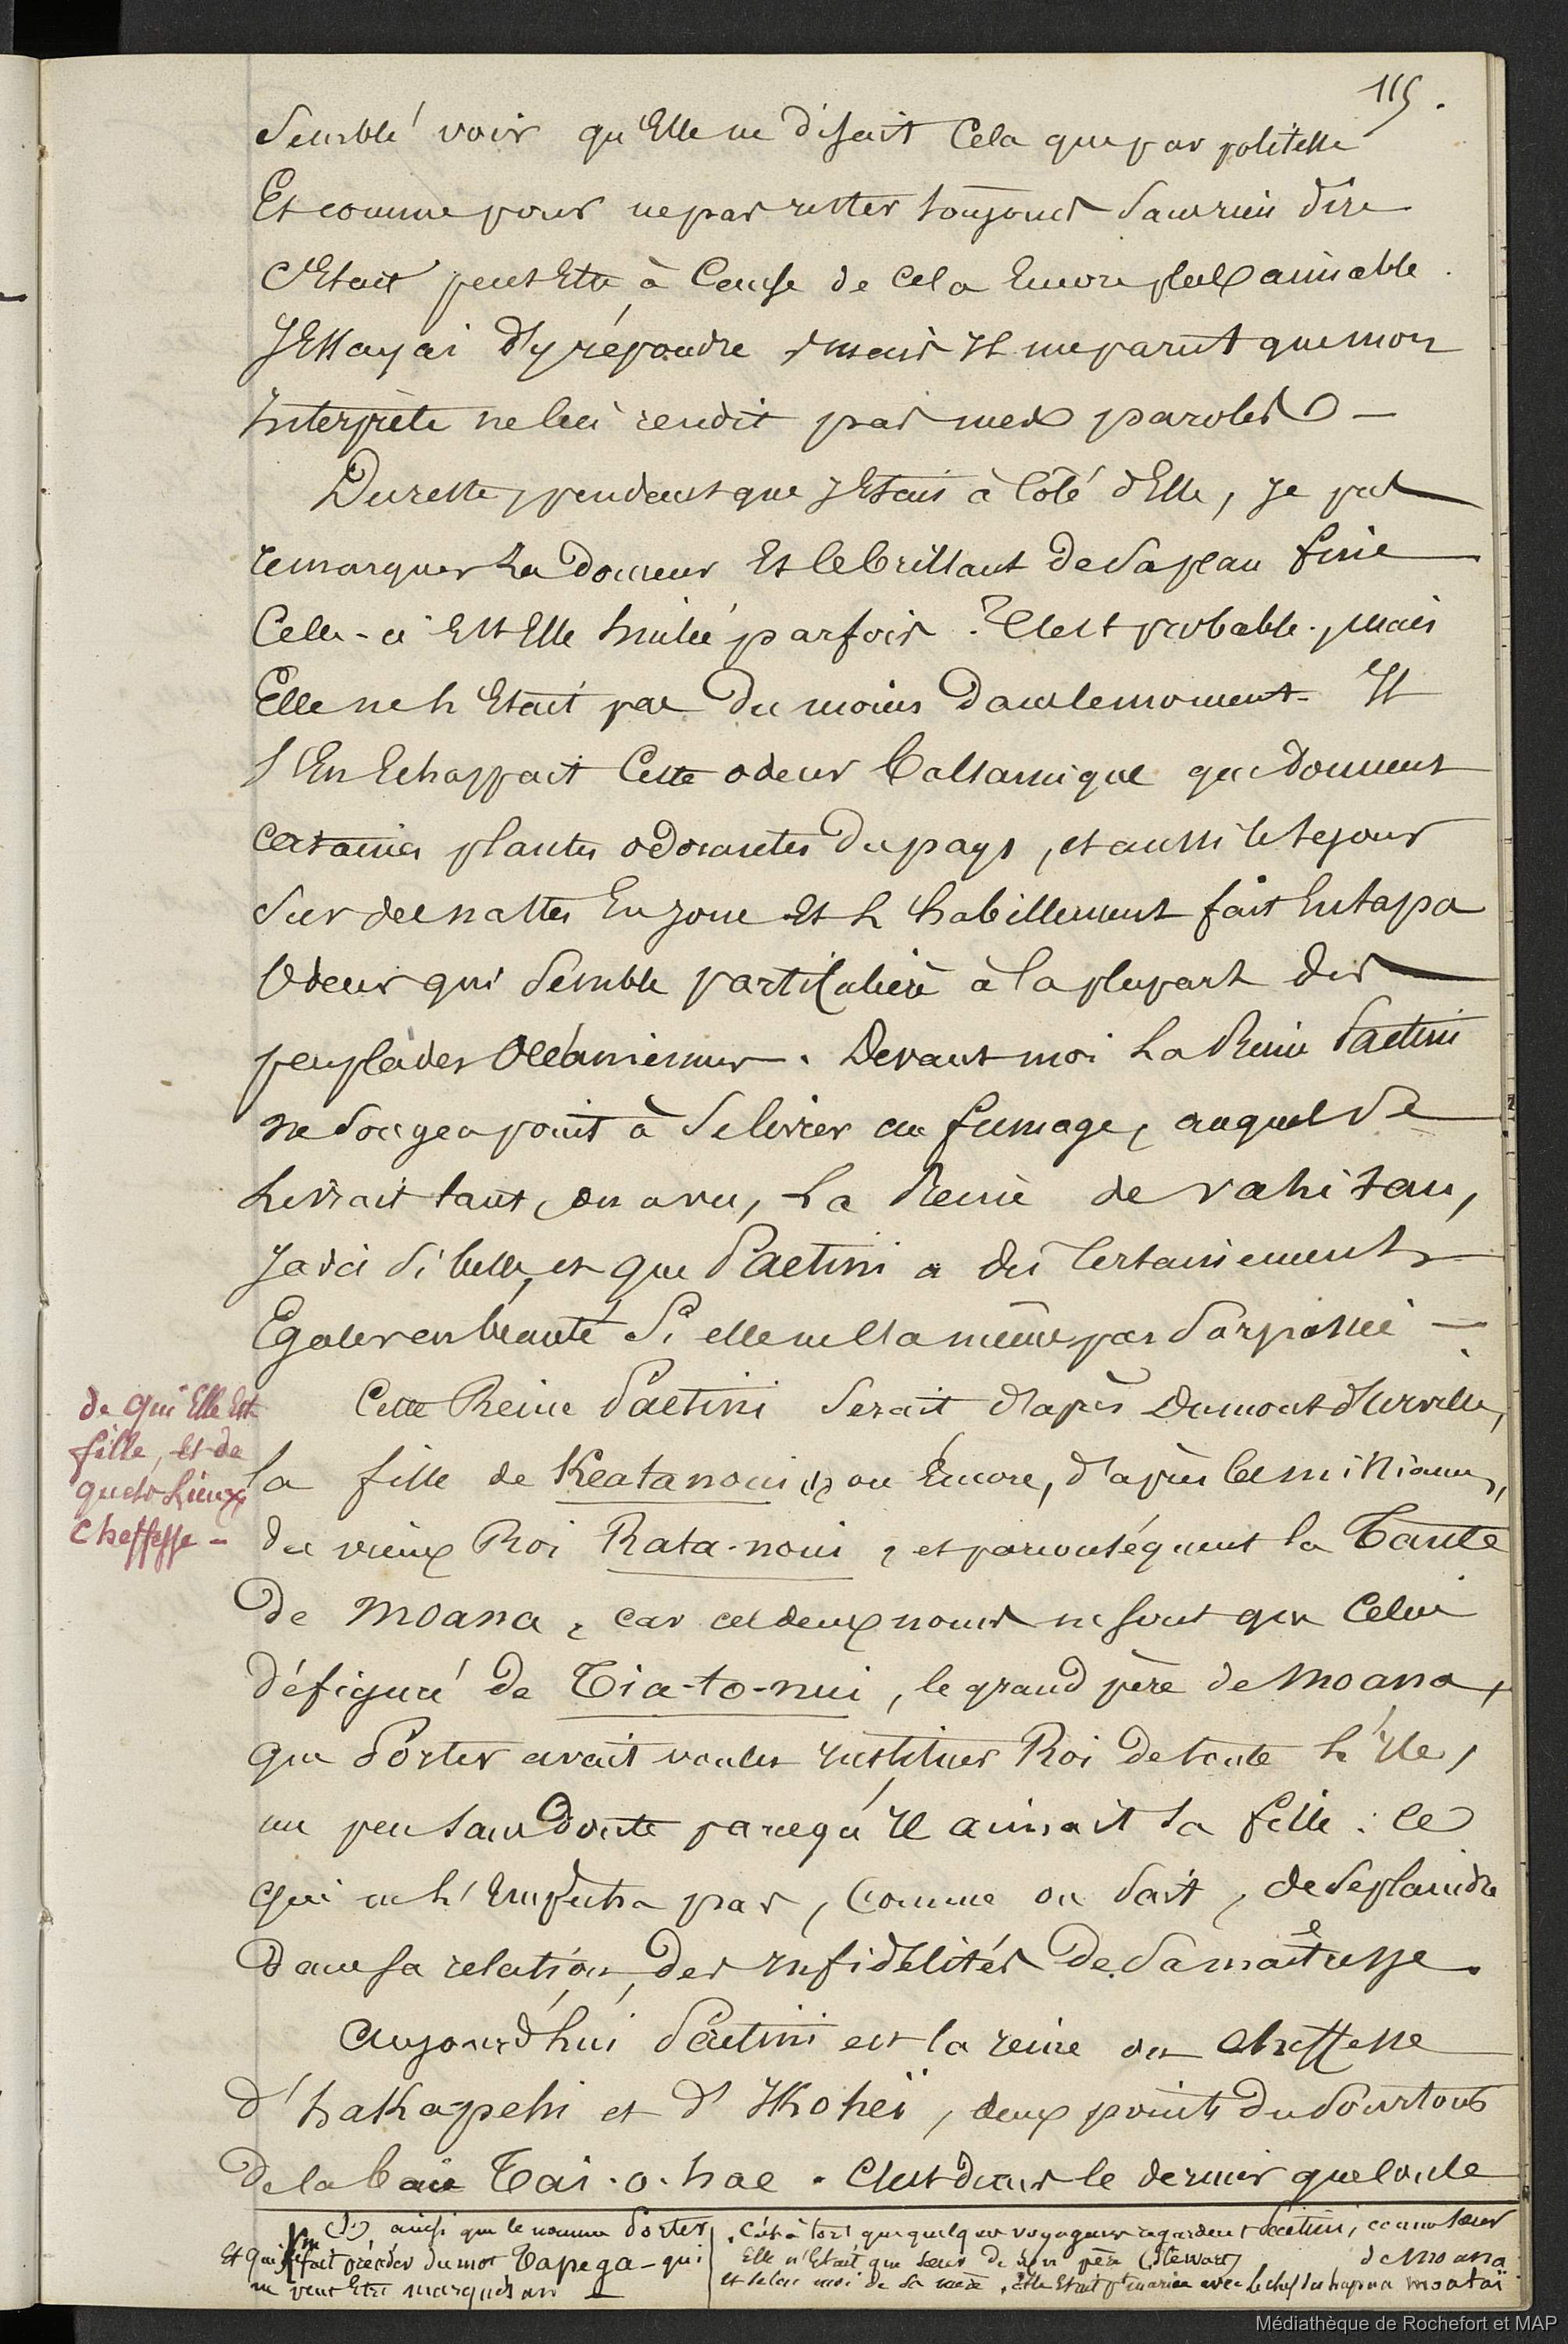 115.
semblé voir qu'Elle ne disait Cela que par politesse
Et comme pour ne pas rester toujours sans rien dire
C'Etait peut Etre à Cause de Cela Encore plus aimable.
J'Essayai d'y répondre, mais Il me parut que mon
Interprète ne lui rendit pas mes paroles —
Du reste, pendant que J'Etais à Côté d'Elle, Je pus
remarquer La douceur Et le brillant de sa peau fine
Celle-ci Est Elle huilée parfois. C'est probable, mais
Elle ne l'Etait pas du moins dans le moment. Il
s'En Echappait Cette odeur balsamique que donnent
certaines plantes odorantes du pays, et aussi le séjour
sur des nattes En jonc Et L'habillement fait En tapa
Odeur qui semble particulière à la plupart des
peuplades Océaniennes. Devant moi La Reine Paetini
ne songea point à se livrer au fumage, auquel se
Livrait tant, on a vu, La Reine de vahitau,
Jadis si belle, et que Paetini a dû Certainement
Egaler en beauté si elle ne l'a même pas surpassée —
Cette Reine Paetini serait d'après Dumont d'Urville,
de qui Elle Est
fille, et de
quels Lieux
cheffesse —
la fille de Keatanoui (1) ou Encore, d'après les missionnes,
du vieux Roi Rata-noui, et par conséquent la Tante
De Moana, car ces deux noms ne sont que Celui
défiguré de Tia-to-nui, le grand père de Moana,
que Porter avait voulu instituer Roi de toute L'Ile,
un peu sans doute parcequ'Il aimait sa fille : ce
qui ne L'Empêcha pas, Comme on sait, de se plaindre
dans sa relation, des Infidélités De sa maîtresse.
Aujourd'hui Paetini est la reine ou cheffesse
d'hakapehi et d'Ikoheï, deux points du Pourtour
De la baie Taï-o-hae. C'est dans le dernier que l'onde
(1) ainsi que le nomme Porter
Et qui fait précéder du mot Tapega - qui
ne peut Etre marquésan —
C'est à tort que quelques voyageurs regardent Paetini, comme soeur
de Moana
Elle n'Etait que soeur de son père (Stewart)
et selon moi de sa mère, Elle Etait mariée avec le chef des hapaa moataï
Médiathèque de Rochefort et MAP